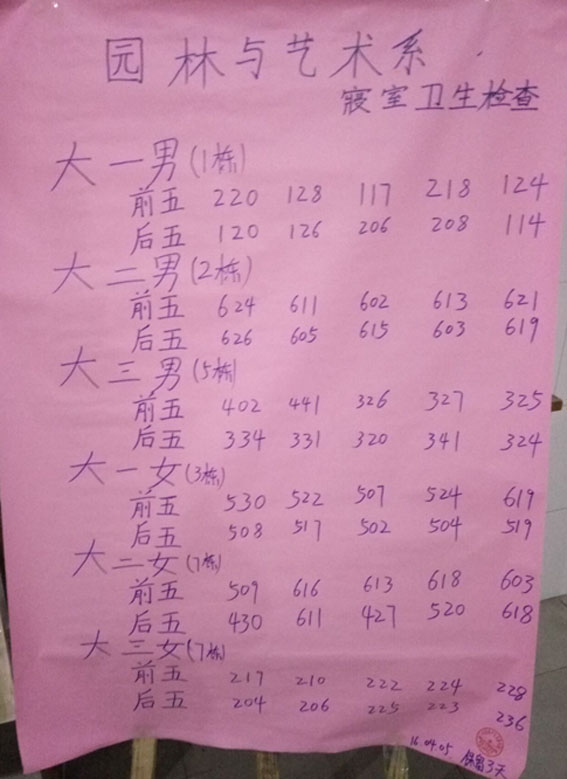 园林与艺术系
寝室卫生检查
大一男(1栋)
前五 220 128 117 218 124
后五 120 126 206 208 114
大二男(2栋)
前五 624 611 602 613 621
后五 626 605 615 603 619
大三男(5栋)
前五 402 441 326 327 325
后五 334 331 320 341 324
大一女(3栋)
前五 530 522 507 524 619
后五 508 517 502 504 519
大二女(7栋)
前五 509 616 613 618 603
后五 430 611 427 520 618
大三女(7栋)
前五 217 210 222 224 228
后五 204 206 225 223 236
16.04.05 保留3天